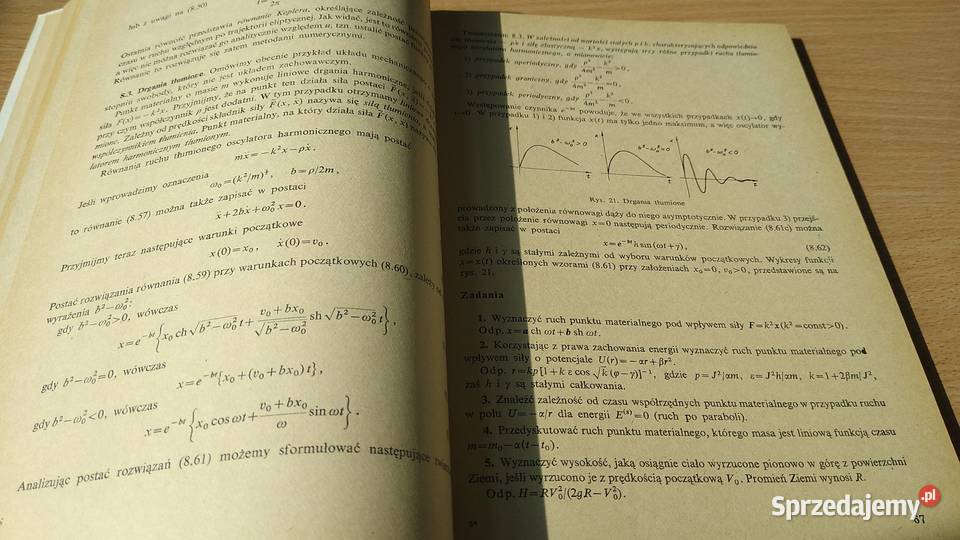 lub z uwagi na (8.50)
2π
Ostatnia równość przedstawia równanie Keplera, określające zależność
czasu w ruchu względnym po trajektorii eliptycznej. Jak widać, jest to
a więc nie można rozwiązać go analitycznie względem u, tzn. ustalić postać
Równanie to rozwiązuje się zatem metodami numerycznymi.
8.3. Drgania tłumione. Omówimy obecnie przykład układu mechanicznego
stopniu swobody, który nie jest układem zachowawczym.
Punkt materialny o masie m wykonuje liniowe drgania harmoniczne, jeśli
siła F(x)=−k²x. Przyjmijmy, że na punkt ten działa siła postaci
przy czym współczynnik ρ jest dodatni. W tym przypadku otrzymamy
mione. Zależny od prędkości składnik siły F(x, ẋ) nazywa się siłą tłumienia
współczynnikiem tłumienia. Punkt materialny, na który działa siła F(x, ẋ)
latorem harmonicznym tłumionym.
Równania ruchu tłumionego oscylatora harmonicznego mają postać
mẍ=−k²x−ρẋ.
Jeśli wprowadzimy oznaczenia
ω₀=(k²/m)^½, b=ρ/2m,
to równanie (8.57) można także zapisać w postaci
ẍ+2bẋ+ω₀²x=0.
Przyjmijmy teraz następujące warunki początkowe
x(0)=x₀, ẋ(0)=v₀.
Postać rozwiązania równania (8.59) przy warunkach początkowych (8.60), zależy od
wyrażenia b²−ω₀²:
gdy b²−ω₀²>0, wówczas
x=e^{−bt}{x₀ ch √(b²−ω₀²) t + (v₀+bx₀)/√(b²−ω₀²) sh √(b²−ω₀²) t},
gdy b²−ω₀²=0, wówczas
x=e^{−bt}{x₀+(v₀+bx₀)t},
gdy b²−ω₀²<0, wówczas
x=e^{−bt}{x₀ cos ωt + (v₀+bx₀)/ω sin ωt}.
Analizując postać rozwiązań (8.61) możemy sformułować następujące
Twierdzenie 8.3. W zależności od wartości stałych ρ i k, charakteryzujących odpowiednio
siłę tłumienia −ρẋ i siłę elastyczną −k²x, występują trzy różne przypadki ruchu tłumio-
nego oscylatora harmonicznego, a mianowicie:
1) przypadek aperiodyczny, gdy ρ²/4m² − k²/m >0,
2) przypadek graniczny, gdy ρ²/4m² − k²/m =0,
3) przypadek periodyczny, gdy ρ²/4m² − k²/m <0.
Występowanie czynnika e^{−bt} powoduje, że we wszystkich przypadkach x(t)→0, gdy
t→∞. W przypadku 1) i 2) funkcja x(t) ma tylko jedno maksimum, a więc oscylator wy-
b²−ω₀²>0
b²−ω₀²=0
b²−ω₀²<0
Rys. 21. Drgania tłumione
prowadzony z położenia równowagi dąży do niego asymptotycznie. W przypadku 3) przejś-
cia przez położenie równowagi x=0 następują periodycznie. Rozwiązanie (8.61c) można
także zapisać w postaci
x=e^{−bt}h sin(ωt+γ), (8.62)
gdzie h i γ są stałymi zależnymi od wyboru warunków początkowych. Wykresy funkcji
x=x(t) określonych wzorami (8.61) przy założeniach x₀=0, v₀>0, przedstawione są na
rys. 21.
Zadania
1. Wyznaczyć ruch punktu materialnego pod wpływem siły F=k²x(k²=const>0).
Odp. x=a ch ωt+b sh ωt.
2. Korzystając z prawa zachowania energii wyznaczyć ruch punktu materialnego pod
wpływem siły o potencjale U(r)=−αr+βr².
Odp. r=kp[1+k ε cos √k (φ−γ)]⁻¹, gdzie p=J²/αm, ε=J²h/αm, k=1+2βm/J²,
zaś h i γ są stałymi całkowania.
3. Znaleźć zależność od czasu współrzędnych punktu materialnego w przypadku ruchu
w polu U=−α/r dla energii E⁽ˢ⁾=0 (ruch po paraboli).
4. Przedyskutować ruch punktu materialnego, którego masa jest liniową funkcją czasu
m=m₀−α(t−t₀).
5. Wyznaczyć wysokość, jaką osiągnie ciało wyrzucone pionowo w górę z powierzchni
Ziemi, jeśli wyrzucono je z prędkością początkową V₀. Promień Ziemi wynosi R.
Odp. H=RV₀²/(2gR−V₀²).
5*
67
Sprzedajemy.pl